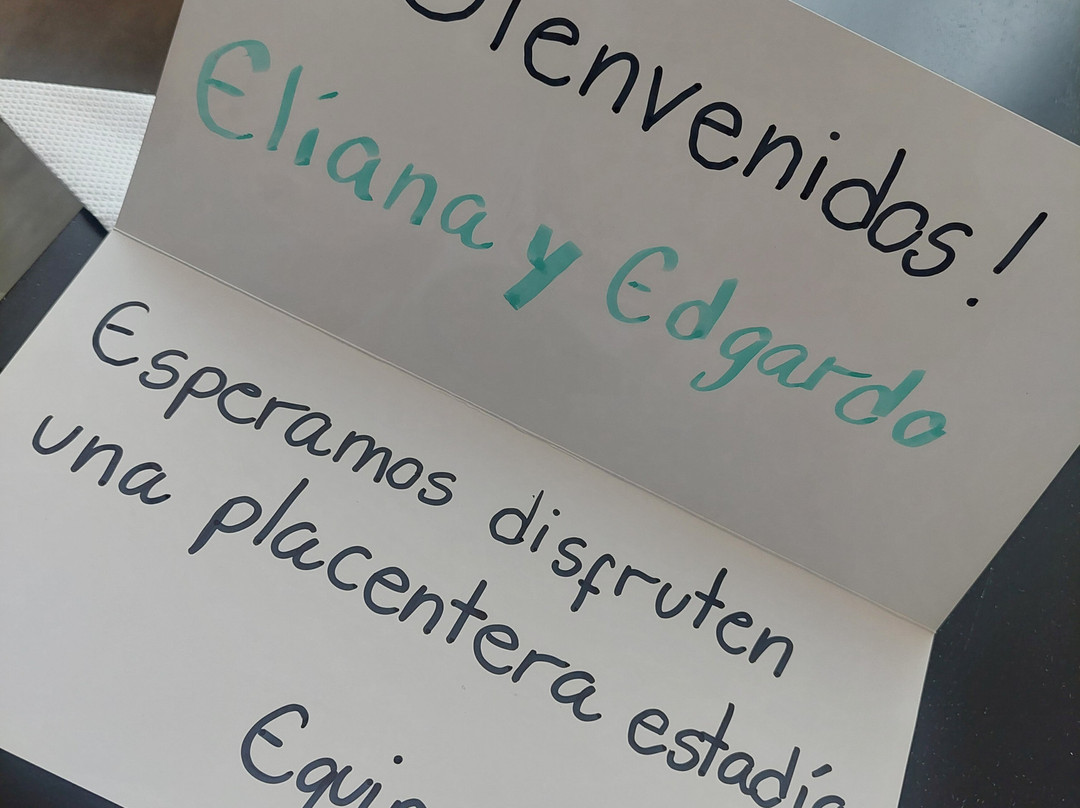 Bienvenidos!
Eliana y Edgardo
Esperamos disfruten
una placentera estadía